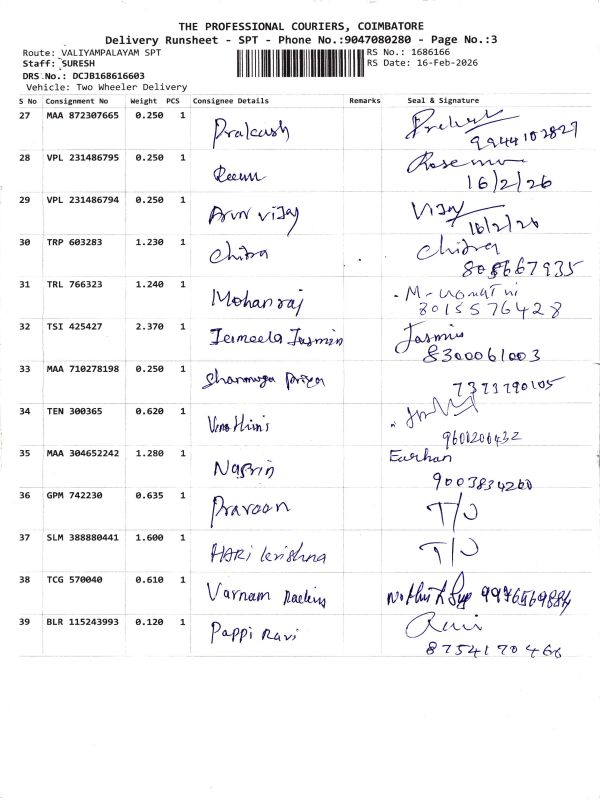 THE PROFESSIONAL COURIERS, COIMBATORE
Delivery Runsheet - SPT - Phone No.:9047080280 - Page No.:3
Route: VALIYAMPALAYAM SPT
RS No.: 1686166
Staff: SURESH
RS Date: 16-Feb-2026
DRS No.: DCJB168616603
Vehicle: Two Wheeler Delivery
S No Consignment No Weight PCS Consignee Details Remarks Seal & Signature
27 MAA 872307665 0.250 1 Prakash
9944102829
28 VPL 231486795 0.250 1
16/2/26
29 VPL 231486794 0.250 1 Arun vijay Vijay
16/2/26
30 TRP 603283 1.230 1 Chitra Chitra
31 TRL 766323 1.240 1 Mohanraj
8015576428
32 TSI 425427 2.370 1 Jasmin Jasmin
8300061003
33 MAA 710278198 0.250 1 Sharmuga Priya
34 TEN 300365 0.620 1
9601200432
35 MAA 304652242 1.280 1 Nasrin Farhan
9003834260
36 GPM 742230 0.635 1 Praveen T/O
37 SLM 388880441 1.600 1 HARI krishna T/O
38 TCG 570040 0.610 1 Varnam
39 BLR 115243993 0.120 1 Pappi Ravi Ravi
8754170466